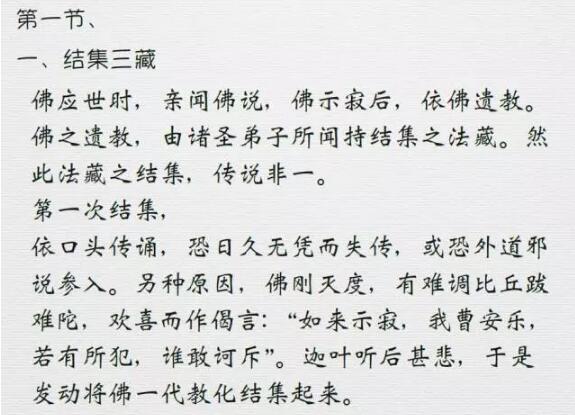 第一节、
一、结集三藏
佛应世时，亲闻佛说，佛示寂后，依佛遗教。
佛之遗教，由诸圣弟子所闻持结集之法藏。然
此法藏之结集，传说非一。
第一次结集，
依口头传诵，恐日久无凭而失传，或恐外道邪
说参入。另种原因，佛刚灭度，有难调比丘跋
难陀，欢喜而作偈言：“如来示寂，我曹安乐，
若有所犯，谁敢诃斥”。迦叶听后甚悲，于是
发动将佛一代教化结集起来。